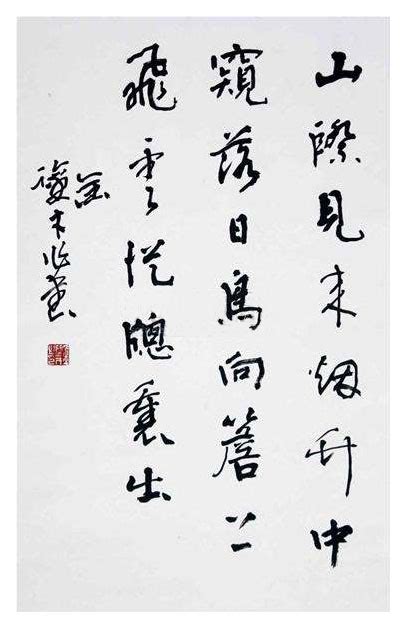 山際見来烟竹中
窺落日鳥向簷上
飛雲從牕裏出